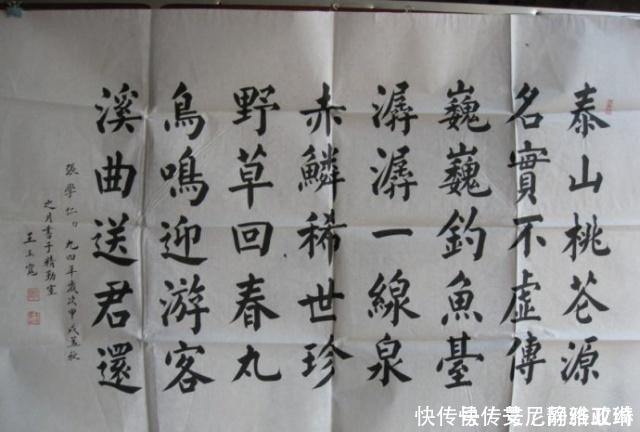 泰山桃花源
名實不虛傳
巍巍釣魚臺
潺潺一線泉
赤鱗稀世珍
野草回春丸
鳥鳴迎游客
溪曲送君還
張學仁 九四年歲次甲戌孟秋
之月書于精勤室
王玉寬
快传号